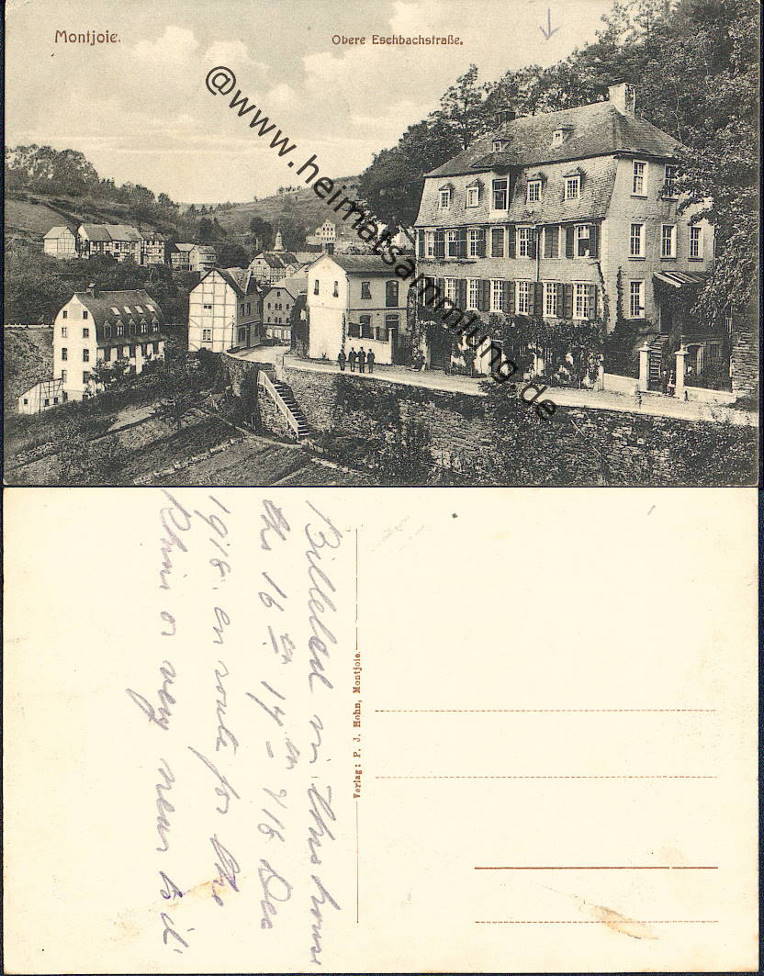 Montjoie.
Obere Eschbachstraße.
@www.heimatsammlung.de
Billeted in this house
the 16th 17th & 18 Dec
1918. en route for the
Rhine or very near to it.
Verlag: P. J. Hohn, Montjoie.